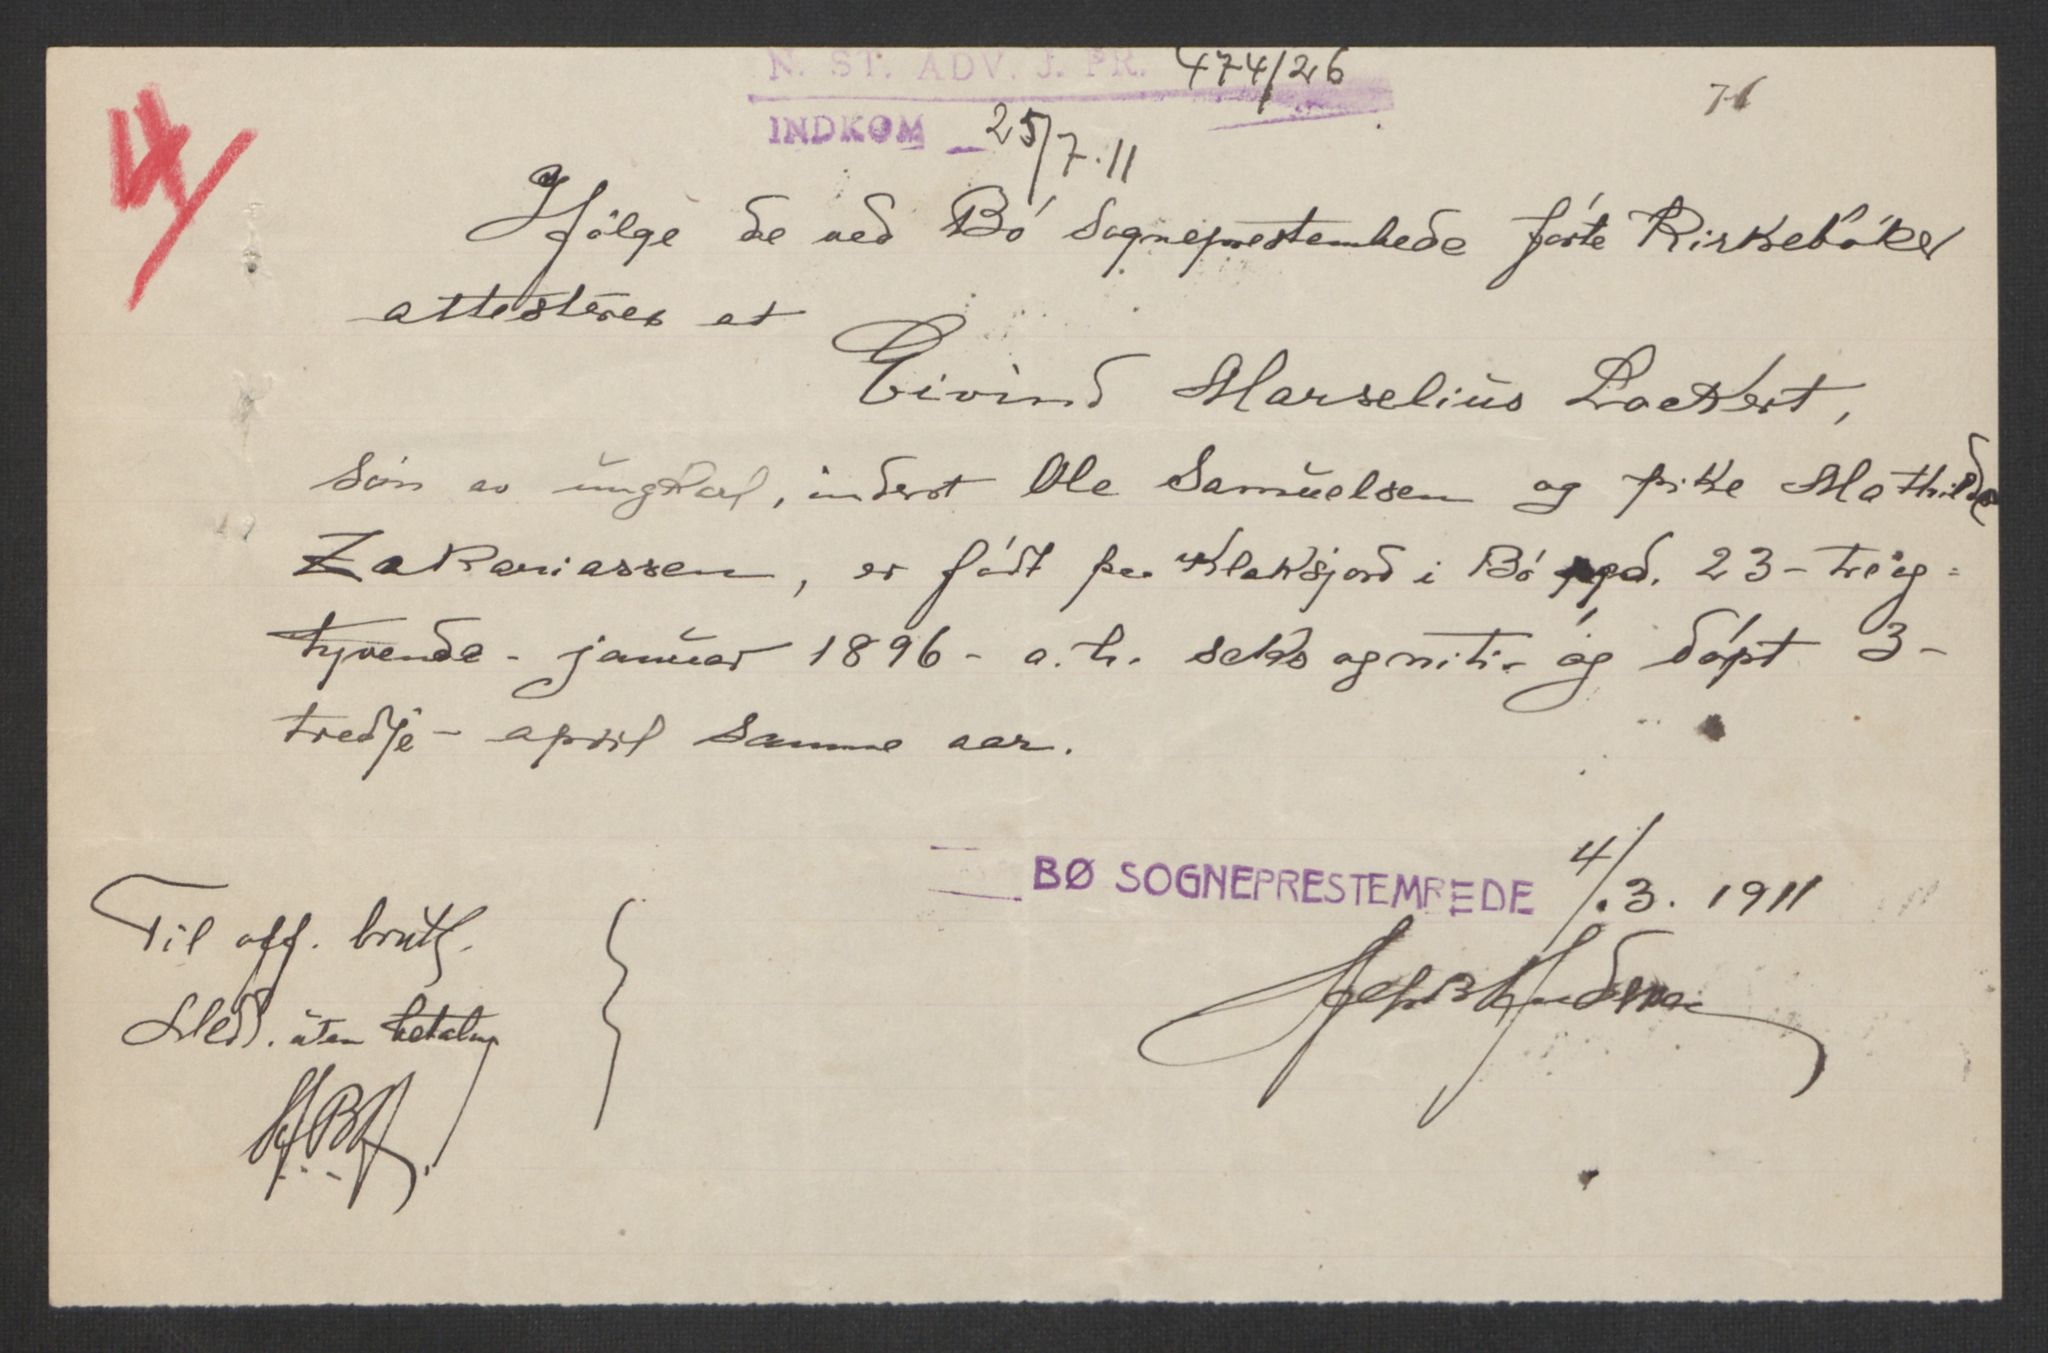 N. ST. ADV. J. PR. 474/26
76
INDKOM 25/7.11
4/
Ifölge de ved Bö sogneprestembede förte Kirkeböker
attesteres at
Eivind Marselius Lockert,
sön av ungkarl, inderst Ole Samuelsen og pike Mathilde
Zakariassen, er födt paa Klaksjord i Bö pgd. 23 - treog=
tyvende - januar 1896 - a. h. seks og niti - og döpt 3 -
tredje - april samme aar.
BØ SOGNEPRESTEMBEDE 4/3. 1911
Til off. bruk.
Med. uten betaling